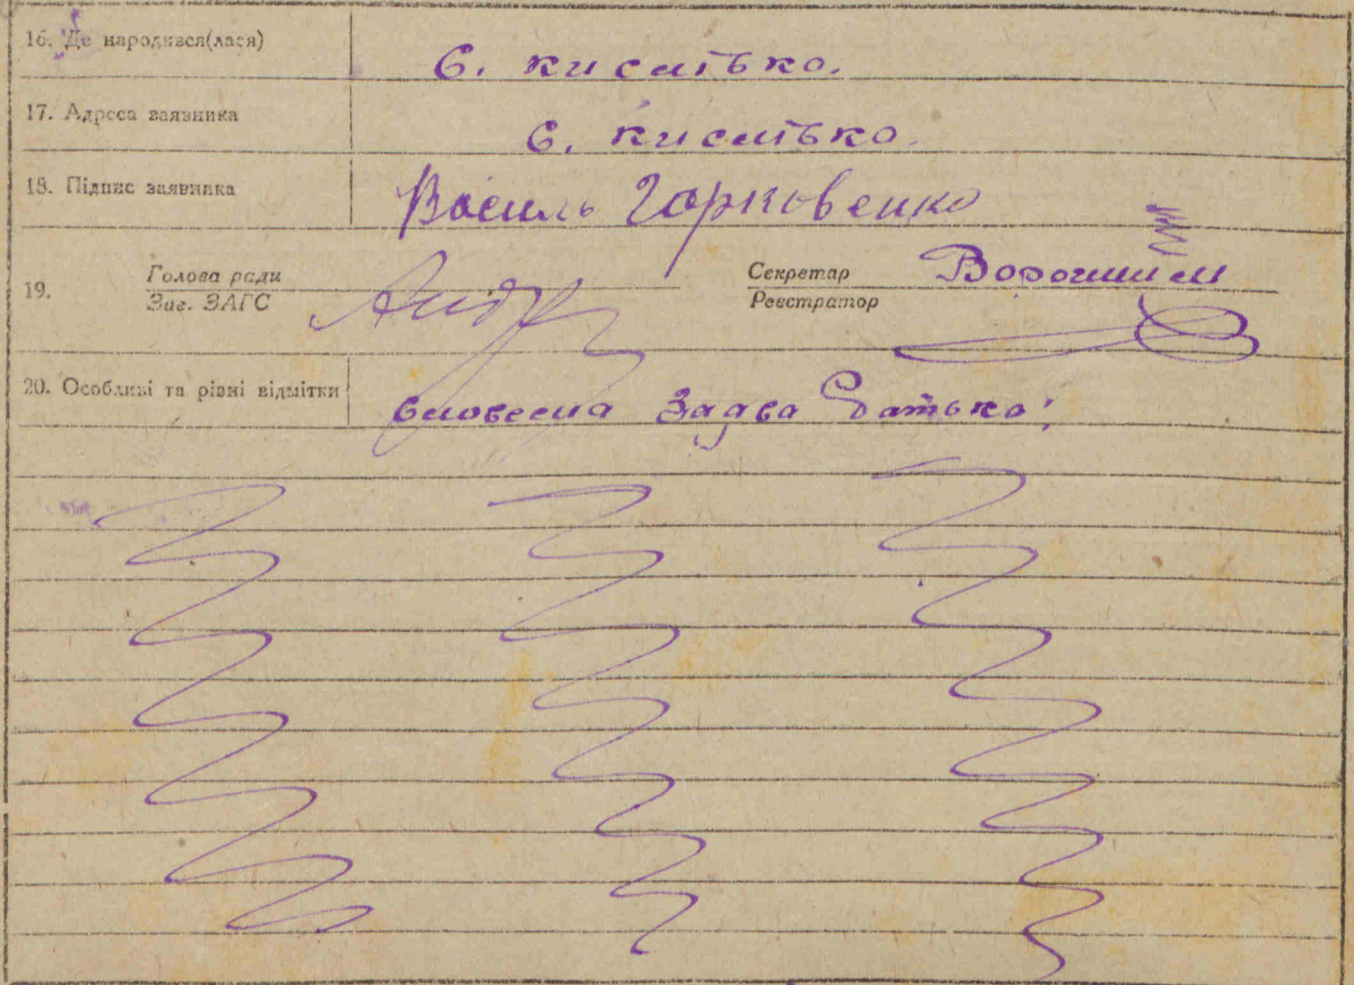 16. Де народився(лася)
с. киситько.
17. Адреса заявника
с. киситько.
18. Підпис заявника
Василь Горковенко
19. Голова ради Секретар
Заг. ЗАГС Реєстратор
20. Особливі та різні відмітки
словесна заява батько;